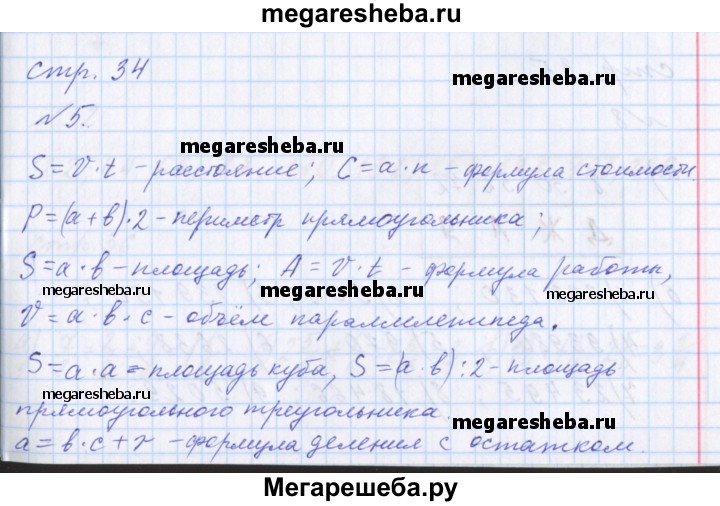 megaresheba.ru
стр. 34
megaresheba.ru
№5.
megaresheba.ru
megaresheba.ru
S = v · t – расстояние; C = a · n – формула стоимости.
P = (a + b) · 2 – периметр прямоугольника;
S = a · b – площадь; A = v · t – формула работы,
megaresheba.ru
megaresheba.ru
megaresheba.ru
V = a · b · c – объём параллелепипеда.
S = a · a = площадь куба, S = (a · b) : 2 – площадь
megaresheba.ru
megaresheba.ru
прямоугольного треугольника.
megaresheba.ru
a = b · c + r – формула деления с остатком.
Мегарешеба.ру